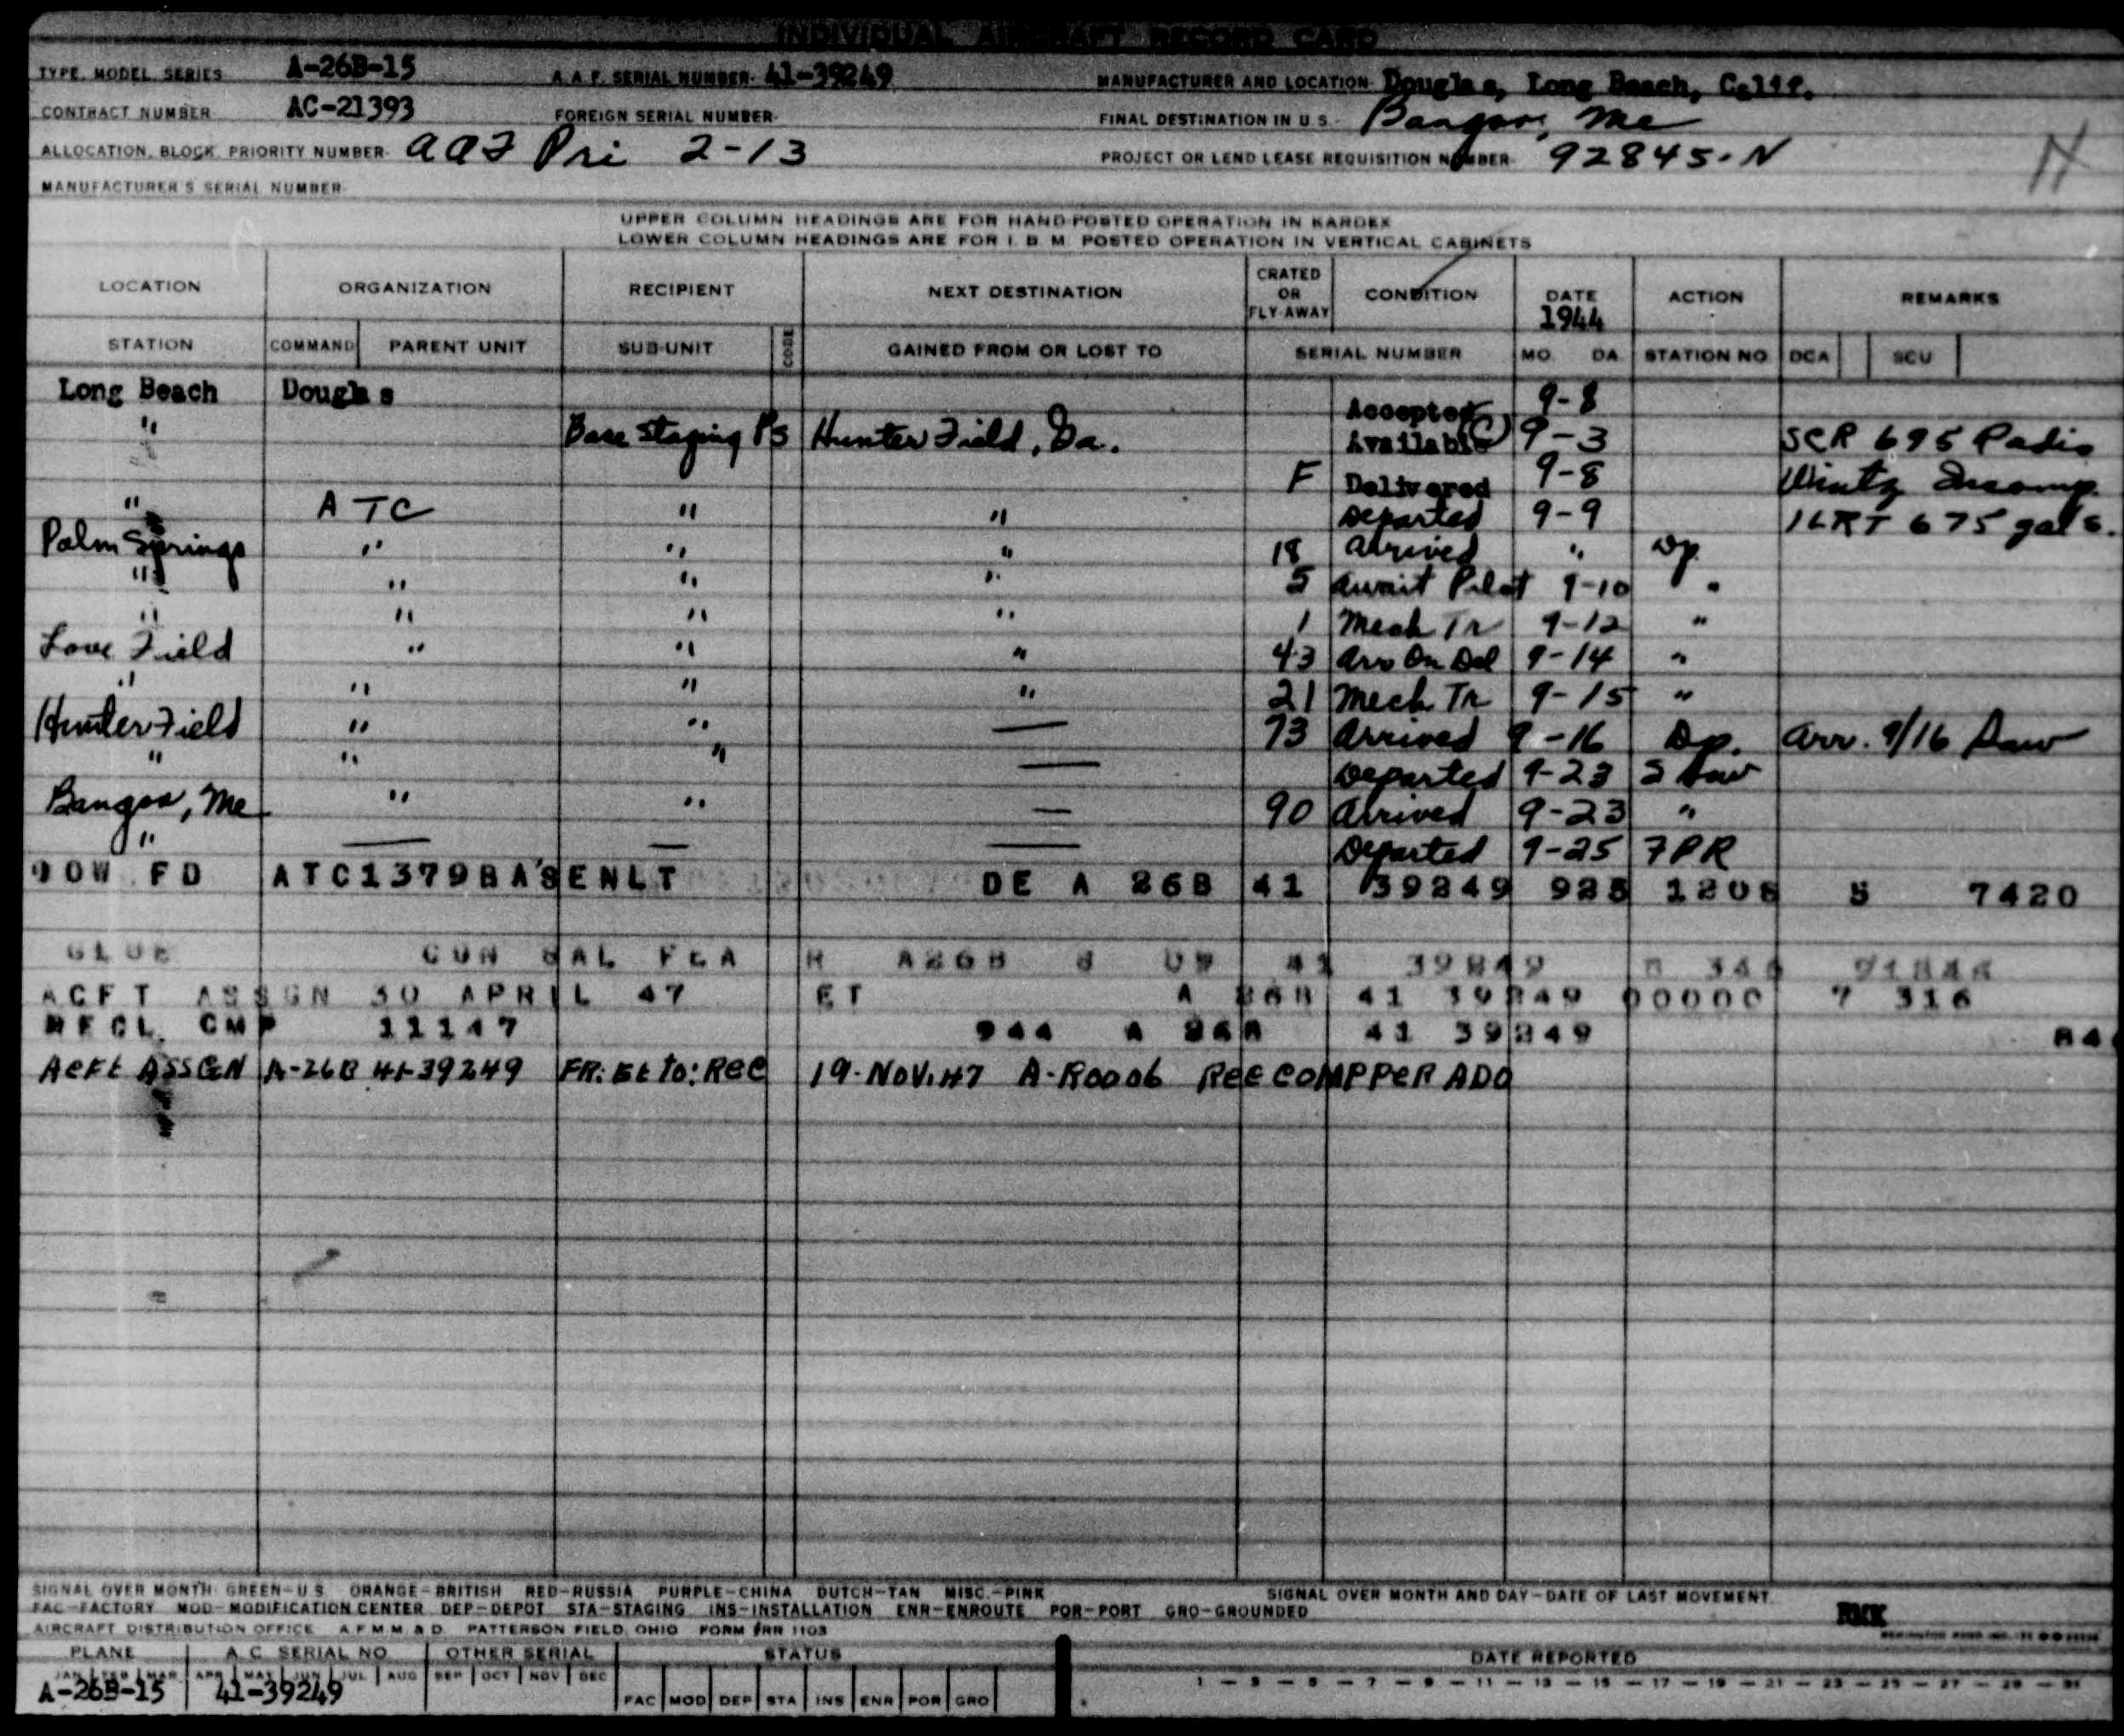 INDIVIDUAL AIRCRAFT RECORD CARD
TYPE, MODEL, SERIES A-26B-15 A.A.F. SERIAL NUMBER- 41-39249 MANUFACTURER AND LOCATION- Douglas, Long Beach, Calif.
CONTRACT NUMBER AC-21393 FOREIGN SERIAL NUMBER- FINAL DESTINATION IN U.S.- Bangor, Me
ALLOCATION, BLOCK, PRIORITY NUMBER- AAF Pri 2-13 PROJECT OR LEND LEASE REQUISITION NUMBER- 92845-N
N
MANUFACTURER'S SERIAL NUMBER-
UPPER COLUMN HEADINGS ARE FOR HAND-POSTED OPERATION IN KARDEX
LOWER COLUMN HEADINGS ARE FOR I. B. M. POSTED OPERATION IN VERTICAL CABINETS
LOCATION ORGANIZATION RECIPIENT NEXT DESTINATION CRATED OR FLY-AWAY CONDITION DATE 1944 ACTION REMARKS
STATION COMMAND PARENT UNIT SUB-UNIT CODE GAINED FROM OR LOST TO SERIAL NUMBER MO. DA. STATION NO. DCA SCU
Long Beach Douglas Accepted 9-8
" Base Staging Ps Hunter Field, Ga. Available (C) 9-3 SCR 695 Radio
F Delivered 9-8 Wintz Incomp.
" ATC " " Departed 9-9 1LRT 675 gals.
Palm Springs " " " 18 Arrived " Dp.
" " " " 5 Await Pilot 9-10 "
" " " " 1 Mech Tr 9-12 "
Love Field " " " 43 Arv On Del 9-14 "
" " " " 21 Mech Tr 9-15 "
Hunter Field " " — 73 Arrived 9-16 Dp. Arr. 9/16 Saw
" " " — Departed 9-23 S Saw
Bangor, Me " " — 90 Arrived 9-23 "
" — — — Departed 9-25 FPR
DOW FD ATC1379BA'SENLT DE A 26B 41 39249 925 1208 5 7420
GLUE CON SAL FEA R A26B 41 39849
ACFT ASSGN 30 APRIL 47 ET A 26B 41 39249 00000 7 316
RECL CMP 11147 944 A 26B 41 39249 84
ACFt ASSGN A-26B 41-39249 FR: Et to: REC 19-NOV.47 A-R0006 REC COMPPER ADO
SIGNAL OVER MONTH: GREEN-U.S. ORANGE-BRITISH RED-RUSSIA PURPLE-CHINA DUTCH-TAN MISC.-PINK SIGNAL OVER MONTH AND DAY-DATE OF LAST MOVEMENT
FAC-FACTORY MOD-MODIFICATION CENTER DEP-DEPOT STA-STAGING INS-INSTALLATION ENR-ENROUTE POR-PORT GRO-GROUNDED
AIRCRAFT DISTRIBUTION OFFICE A F M M & D PATTERSON FIELD, OHIO FORM #RR 1103
PLANE A.C. SERIAL NO. OTHER SERIAL STATUS DATE REPORTED
JAN FEB MAR APR MAY JUN JUL AUG SEP OCT NOV DEC
A-26B-15 41-39249 FAC MOD DEP STA INS ENR POR GRO 1 — 3 — 5 — 7 — 9 — 11 — 13 — 15 — 17 — 19 — 21 — 23 — 25 — 27 — 29 — 31